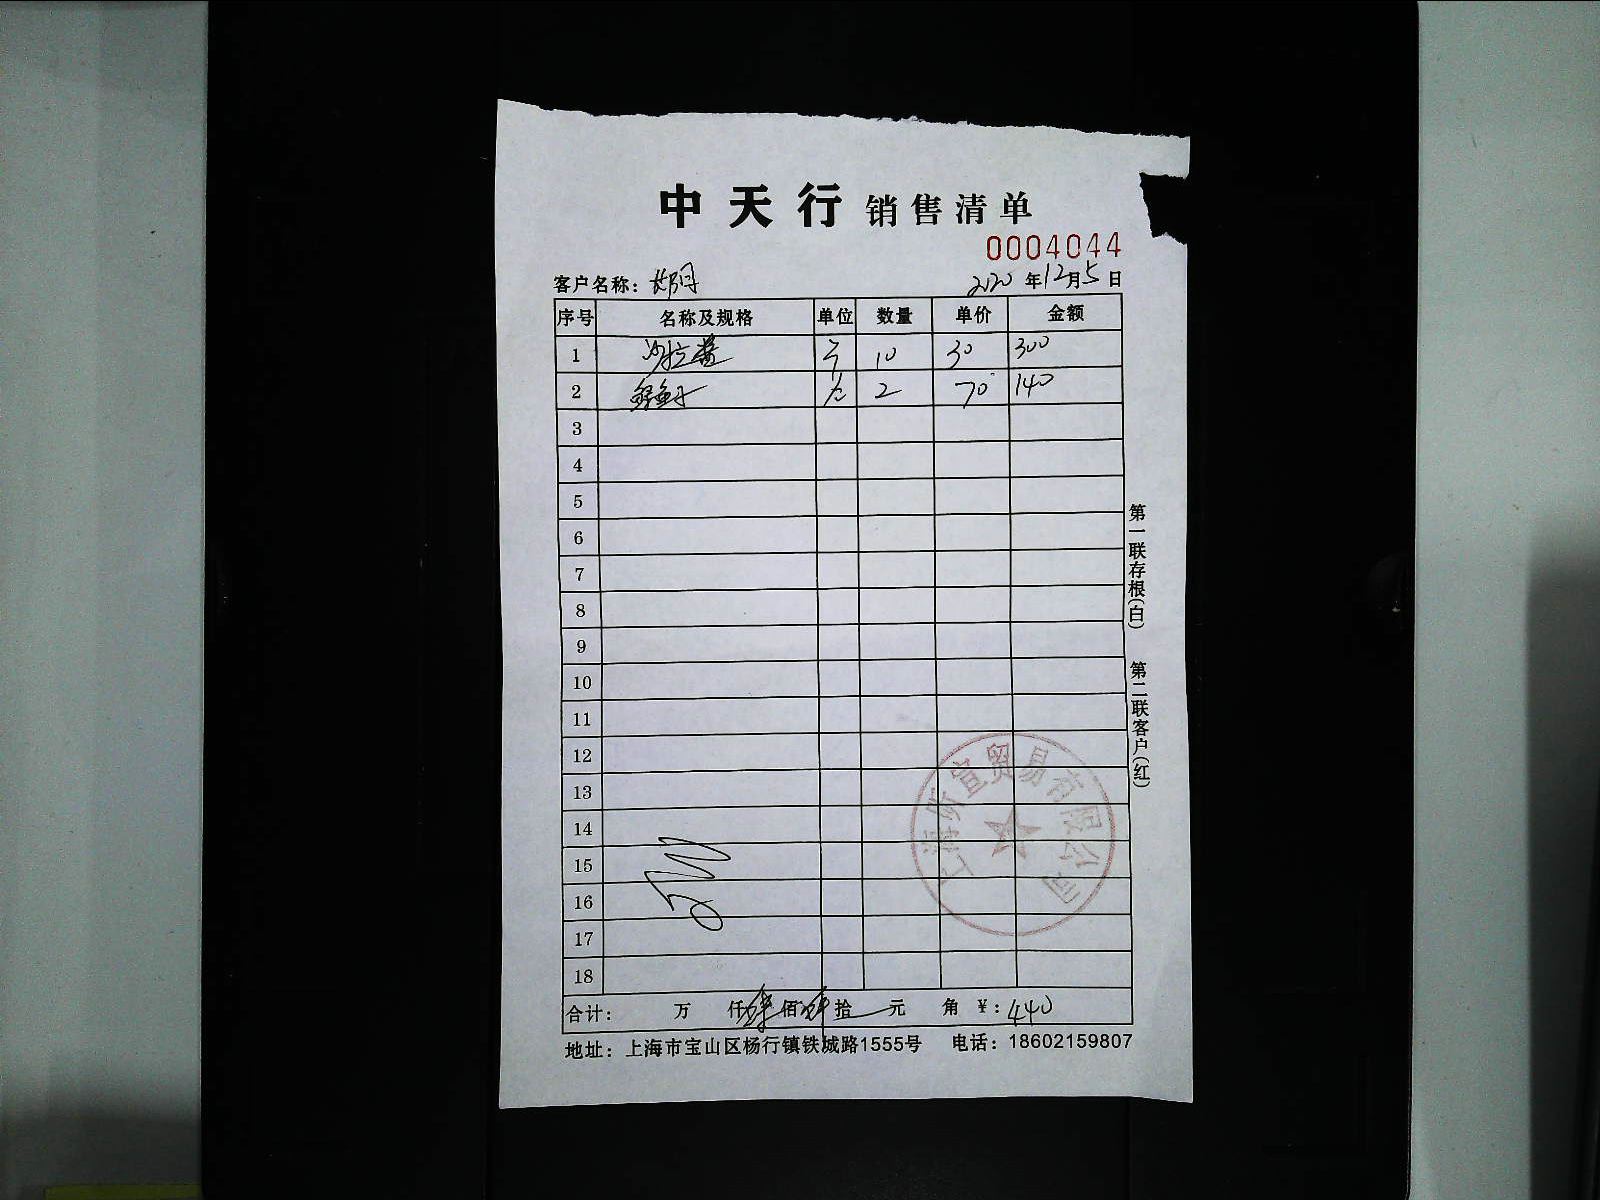 中天行 销售清单
0004044
客户名称： 2020年12月5日
序号 名称及规格 单位 数量 单价 金额
1 沙拉酱 10 30 300
2 2 70 140
3
4
5
6
7
8
9
10
11
12
13
14
15
16
17
18
合计： 万 仟肆佰肆拾 元 角 ¥：440
地址：上海市宝山区杨行镇铁城路1555号 电话：18602159807
第一联存根(白) 第二联客户(红)
上海昕宣贸易有限公司